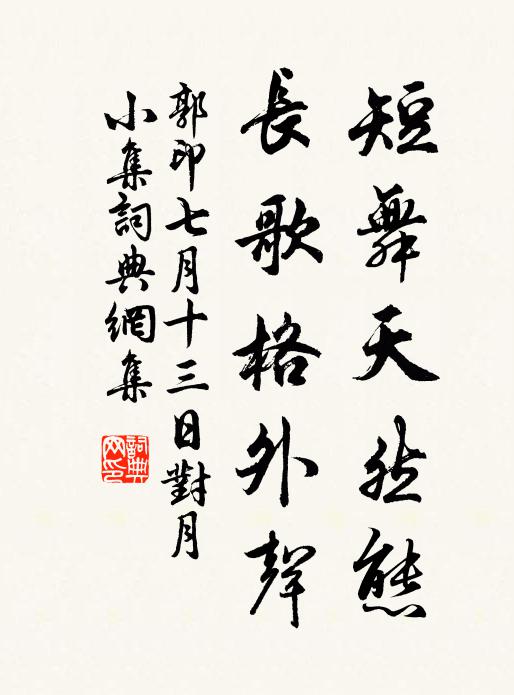 短舞天然態
長歌格外聲
郭印七月十三日對月
小集詞典網集
詞典
网印